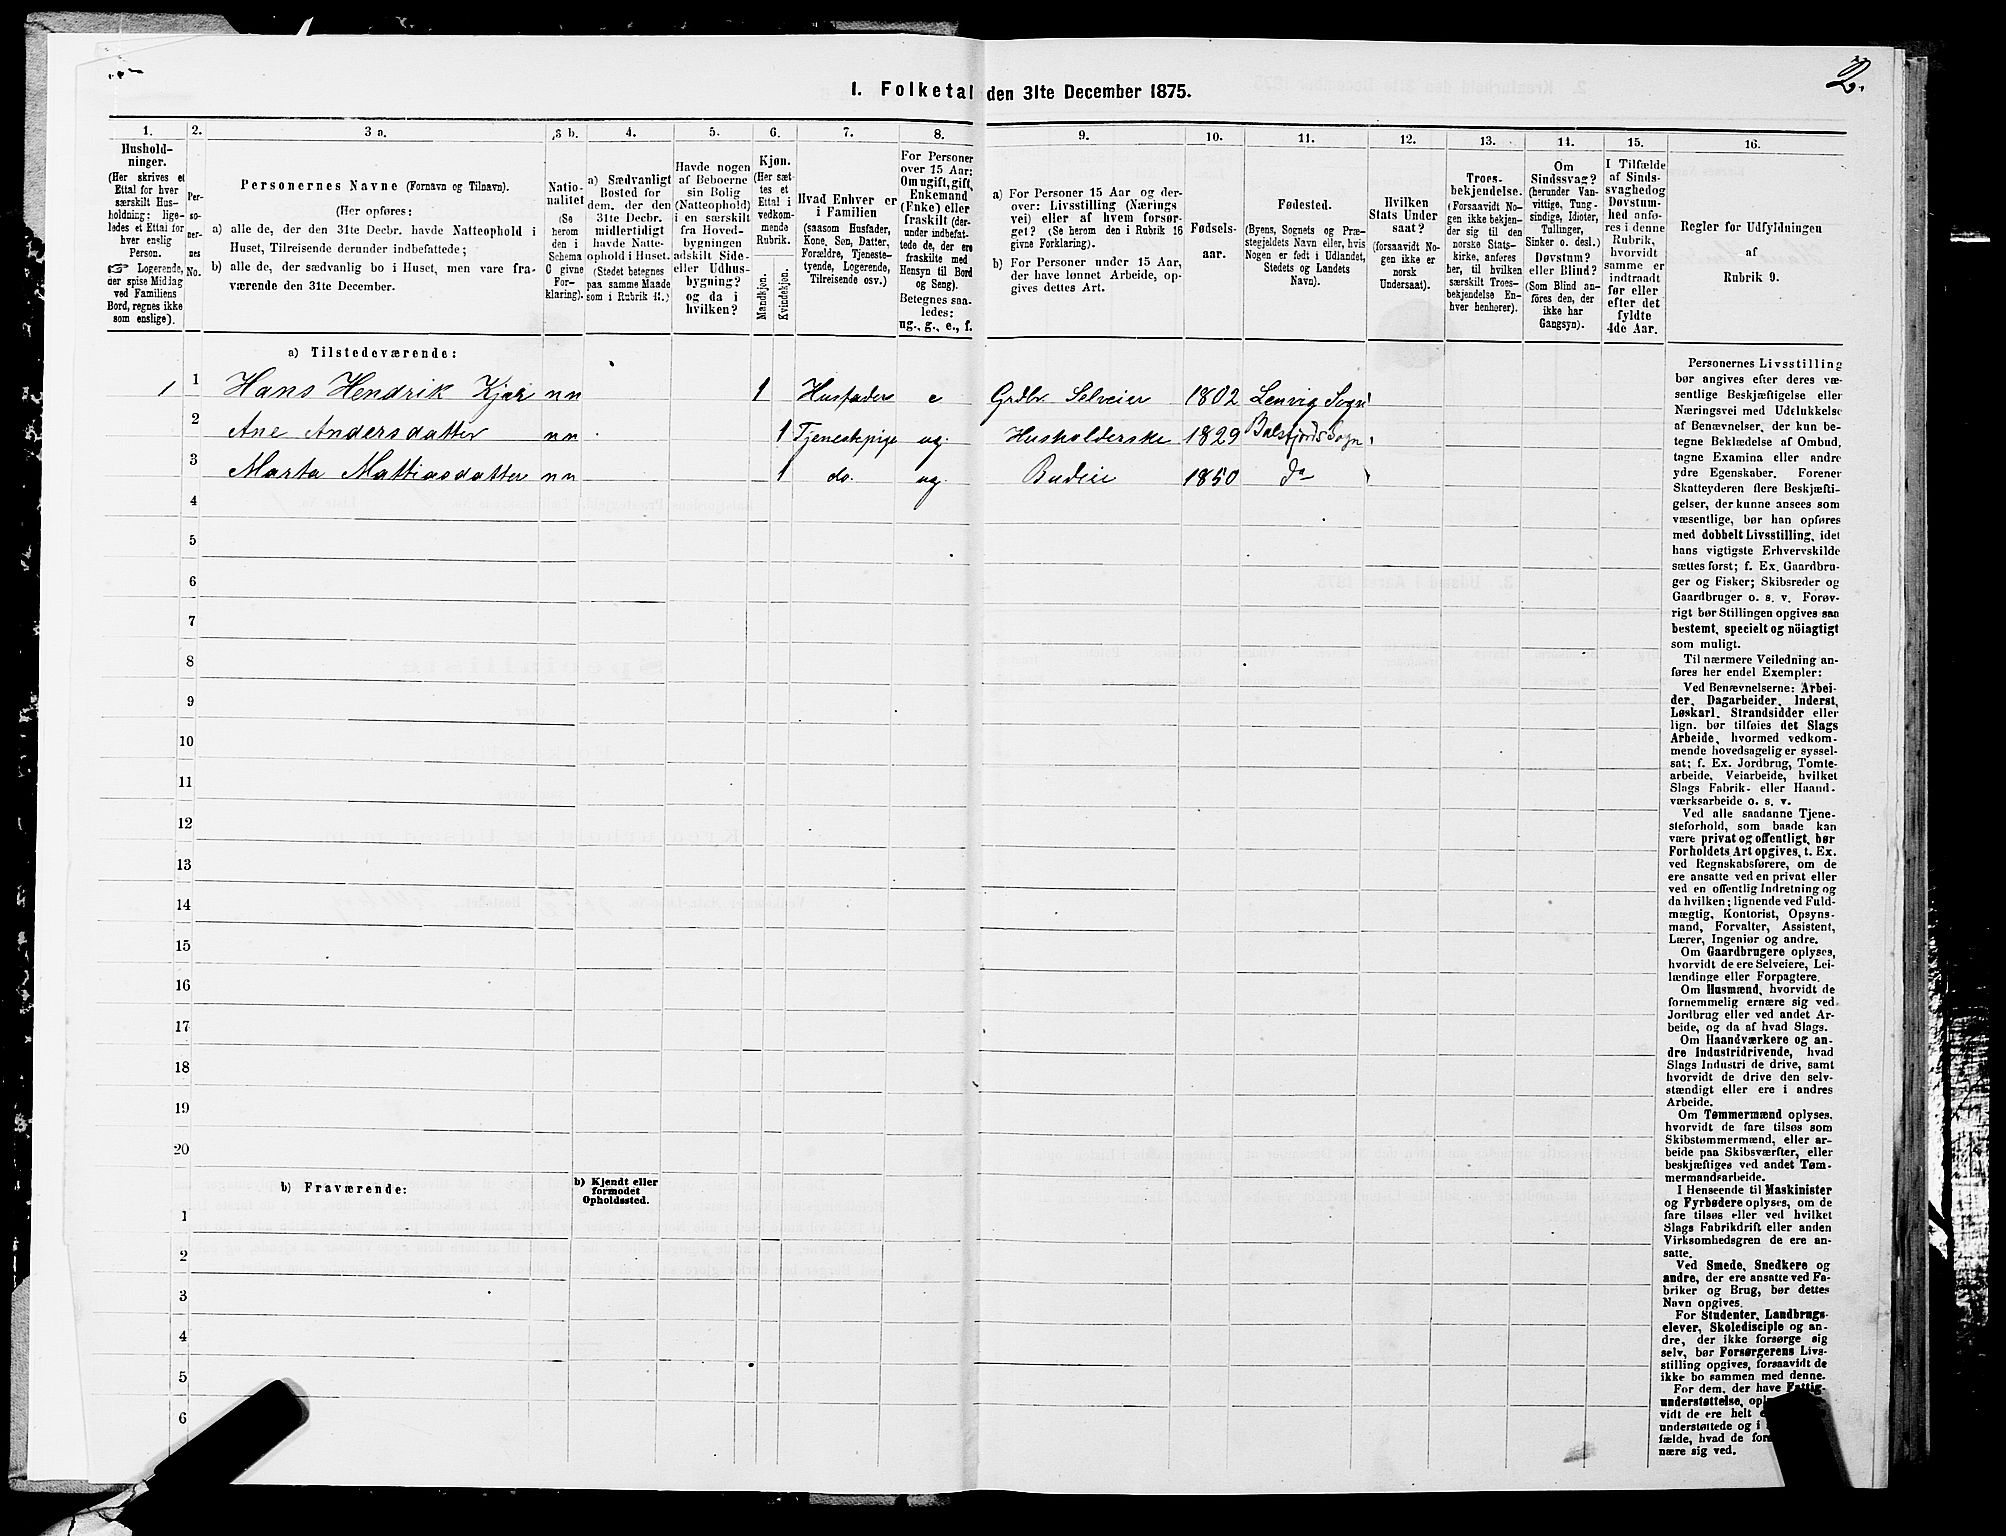 2.
1. Folketal den 31te December 1875.
1. 2. 3 a. 3 b. 4. 5. 6. 7. 8. 9. 10. 11. 12. 13. 14. 15. 16.
Hushold-
ninger.
(Her skrives et
Ettal for hver
særskilt Hus-
holdning; lige-
ledes et Ettal for
hver enslig
Person.
☞ Logerende,
der spise Middag
ved Familiens
Bord, regnes ikke
som enslige).
Per-
so-
ner-
nes
No.
Personernes Navne (Fornavn og Tilnavn).
(Her opføres:
a) alle de, der den 31te Decbr. havde Natteophold i
Huset, Tilreisende derunder indbefattede;
b) alle de, der sædvanlig bo i Huset, men vare fra-
værende den 31te December.
Natio-
nalitet
(Se
herom
den i
Schema
6 givne
For-
klaring).
a) Sædvanligt
Bosted for
dem, der den
31te Decbr.
midlertidigt
havde Natte-
ophold i Huset.
(Stedet betegnes
paa samme Maade
som i Rubrik 11.)
Havde nogen
af Beboerne
sin Bolig
(Natteophold)
i en særskilt
fra Hoved-
bygningen
adskilt Side-
eller Udhus-
bygning?
og da i
hvilken?
Kjøn.
(Her sæt-
tes et
Ettal i
vedkom-
mende
Rubrik.
Mandkjøn.
Kvindekjøn.
Hvad Enhver er
i Familien
(saasom Husfader,
Kone, Søn, Datter,
Forældre, Tjeneste-
tyende, Logerende,
Tilreisende osv.)
For Personer
over 15 Aar:
Om ugift, gift,
Enkemand
(Enke) eller
fraskilt (der-
under indbefat-
tede de, der ere
fraskilte med
Hensyn til Bord
og Seng).
Betegnes saa-
ledes:
ug., g., e., f.
a) For Personer 15 Aar og der-
over: Livsstilling (Nærings
vei) eller af hvem forsør-
get? (Se herom den i Rubrik 16
givne Forklaring).
b) For Personer under 15 Aar,
der have lønnet Arbeide, op-
gives dettes Art.
Fødsels-
aar.
Fødested.
(Byens, Sognets og Præ-
stegjeldets Navn eller, hvis
Nogen er født i Udlandet,
Stedets og Landets
Navn).
Hvilken
Stats Under
saat?
(forsaavidt No-
gen ikke er
norsk
Undersaat).
Troes-
bekjendelse.
(Forsaavidt No-
gen ikke bekjen-
der sig til den
norske Stats-
kirke, anføres
her, til hvilken
særskilt Troes-
bekjendelse En-
hver henhører).
Om
Sindssvag?
(herunder Van-
vittige, Tung-
sindige, Idioter,
Tullinger,
Sinker o. desl.)
Døvstum?
eller Blind?
(Som Blind an-
føres den, der
ikke har
Gangsyn).
I Tilfælde
af Sinds-
svaghed og
Døvstum-
hed anfø-
res i denne
Rubrik,
hvorvidt
samme er
indtraadt
før eller
efter det
fyldte
4de Aar.
Regler for Udfyldningen
af
Rubrik 9.
a) Tilstedeværende:
1 1 Hans Hendrik Kjær nn 1 Husfader e Grdbr. Selveier 1802 Lenvig Sogn
2 Ane Andersdatter nn 1 Tjenestepige ug. Husholderske 1829 Balsfjords Sogn
3 Marta Mattiasdatter nn 1 do. ug. Budeie 1850 do
4
5
6
7
8
9
10
11
12
13
14
15
16
17
18
19
20
b) Fraværende:
b) Kjendt eller
formodet
Opholdssted.
1
2
3
4
5
6
Personernes Livsstilling
bør angives efter deres væ-
sentlige Beskjæftigelse eller
Næringsvei med Udelukkelse
af Benævnelser, der kun be-
tegne Beklædelse af Ombud,
tagne Examina eller andre
ydre Egenskaber. Forener
Skatteyderen flere Beskjæfti-
gelser, der kunne ansees som
væsentlige, bør han opføres
med dobbelt Livsstilling, idet
hans vigtigste Erhvervskilde
sættes først; f. Ex. Gaardbru-
ger og Fisker; Skibsreder og
Gaardbruger o. s. v. Forøv-
rigt bør Stillingen opgives saa
bestemt, specielt og nöiagtigt
som muligt.
Til nærmere Veiledning an-
føres her endel Exempler:
Ved Benævnelserne: Arbei-
der, Dagarbeider, Inderst,
Løskarl, Strandsidder eller
lign. bør tilføies det Slags
Arbeide, hvormed vedkom-
mende hovedsagelig er syssel-
sat; f. Ex. Jordbrug, Tomte-
arbeide, Veiarbeide, hvilket
Slags Fabrik- eller Haand-
værksarbeide o. s. v.
Ved alle saadanne Tjene-
steforhold, som baade kan
være privat og offentligt, bør
Forholdets Art opgives, t. Ex.
ved Regnskabsførere, om de
ere ansatte ved en privat eller
ved en offentlig Indretning og
da hvilken; lignende ved Fuld-
mægtig, Kontorist, Opsyns-
mand, Forvalter, Assistent,
Lærer, Ingeniør og andre.
Om Gaardbrugere oplyses,
hvorvidt de ere Selveiere, Lei-
lændinge eller Forpagtere.
Om Husmænd, hvorvidt de
fornemmelig ernære sig ved
Jordbrug eller ved andet Ar-
beide, og da af hvad Slags.
Om Haandværkere og an-
dre Industridrivende, hvad
Slags Industri de drive, samt
hvorvidt de drive den selv-
stændigt eller ere i andres
Arbeide.
Om Tømmermænd oplyses,
hvorvidt de fare tilsøs som
Skibstømmermænd, eller ar-
beide paa Skibsværfter, eller
beskjæftiges ved andet Tøm-
mermandsarbeide.
I Henseende til Maskinister
og Fyrbødere oplyses, om de
fare tilsøs eller ved hvilket
Slags Fabrikdrift eller anden
Virksomhedsgren de ere an-
satte.
Ved Smede, Snedkere og
andre, der ere ansatte ved Fa-
briker og Brug, bør dettes
Navn opgives.
For Studenter, Landbrugs-
elever, Skoledisciple og an-
dre, der ikke forsørge sig
selv, bør Forsørgerens Livs-
stilling opgives, forsaavidt de
ikke bo sammen med denne.
For dem, der have Fattig-
understøttelse,
vidt de ere helt
understøttede og i
fælde, hvad de
nære sig ved.